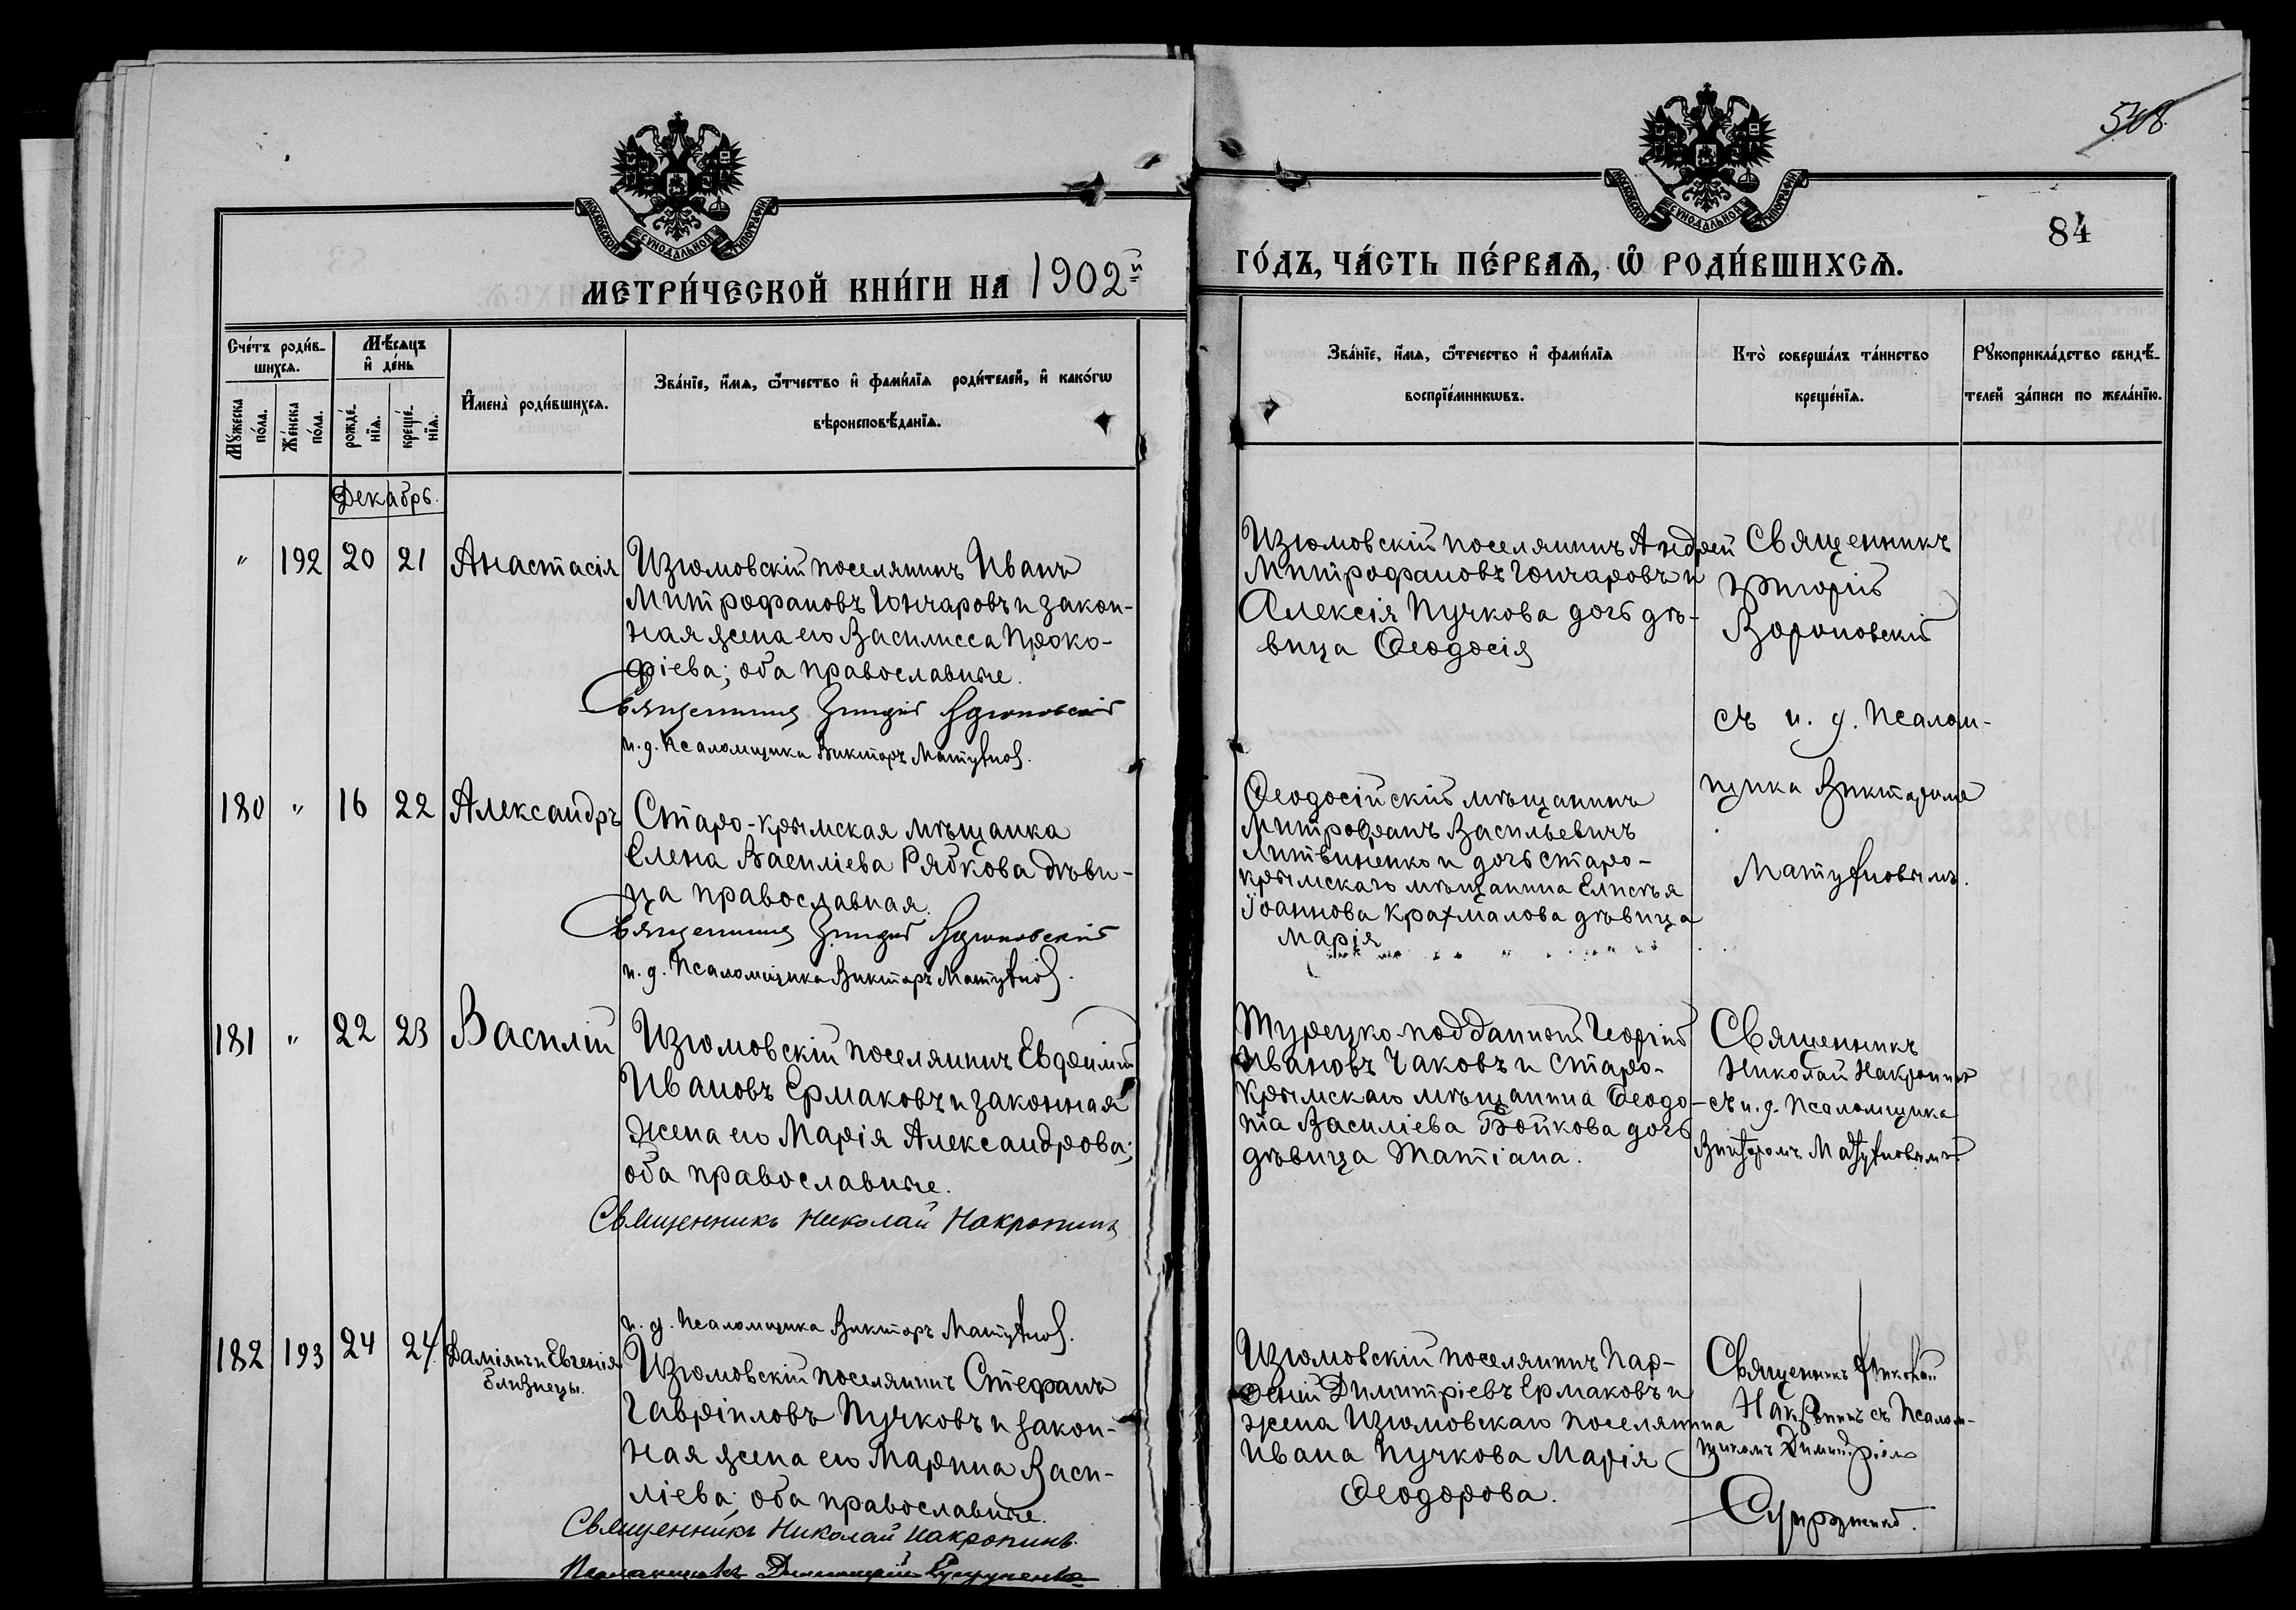 508
84
МОСКОВСКОЙ СѴНОДАЛЬНОЙ ТИПОГРАФІИ
МОСКОВСКОЙ СѴНОДАЛЬНОЙ ТИПОГРАФІИ
МЕТРИ́ЧЕСКОЙ КНИ́ГИ НА 1902й
ГО́ДЪ, ЧА́СТЬ ПЕ́РВАѦ, Ѡ҆ РОДИ́ВШИХСѦ.
Сче́тъ роди́в-
шихсѧ.
Мꙋ́жеска
по́ла.
Же́нска
по́ла.
Мѣ́сѧцъ
и҆ де́нь
рожде́-
нїѧ.
креще́-
нїѧ.
И҆мена̀ роди́вшихсѧ.
Зва́нїе, и҆́мѧ, ѻ҆́тчество и҆ фами́лїѧ роди́телей, и҆ како́гѡ
вѣроисповѣ́данїѧ.
Зва́нїе, и҆́мѧ, ѻ҆те́чество и҆ фами́лїѧ
воспрїе́мникѡвъ.
Кто̀ соверша́лъ та́инство
креще́нїѧ.
Рꙋкоприкла́дство свидѣ́-
телей за́писи по жела́нїю.
Декабрь.
" 192 20 21 Анастасія
Изюмовскій поселянинъ Иванъ
Митрофановъ Гончаровъ и закон-
ная жена его Василисса Проко-
фіева; оба православные.
Священникъ
и. д. Псаломщика Викторъ
Изюмовскій поселянинъ Андрей
Митрофановъ Гончаровъ и
Алексія Пучкова дочь дѣ-
вица Ѳеодосія
Священникъ
съ и. д. Псалом-
щика Викторомъ
180 " 16 22 Александръ
Старо-крымская мѣщанка
Елена Василіева Рябкова дѣви-
ца православная.
Священникъ
и. д. Псаломщика Викторъ
Ѳеодосійскій мѣщанинъ
Митрофанъ Васильевичъ
Литвиненко и дочь старо-
крымскаго мѣщанина Елисѣя
Іоаннова Крахмалова дѣвица
Марія
181 " 22 23 Василій
Изюмовскій поселянинъ Евфимій
Ивановъ Ермаковъ и законная
жена его Марія Александрова;
оба православные.
Священникъ Николай Накропинъ
и. д. Псаломщика Викторъ
Турецко-подданный Георгій
Ивановъ Чаковъ и старо-
крымскаго мѣщанина Ѳеодо-
та Василіева Бойкова дочь
дѣвица Татіана.
Священникъ
Николай Накропинъ
съ и. д. Псаломщика
Викторомъ
182 193 24 24 Даміянъ и Евгенія
близнецы.
Изюмовскій поселянинъ Стефанъ
Гавріиловъ Пучковъ и закон-
ная жена его Марина Васи-
ліева; оба православные.
Священникъ Николай Накропинъ.
Изюмовскій поселянинъ Пар-
ѳеній Димитріевъ Ермаковъ и
жена Изюмовскаго поселянина
Ивана Пучкова Марія
Ѳеодорова.
Священникъ Николай
Накропинъ съ Псалом-
щикомъ Димитріемъ